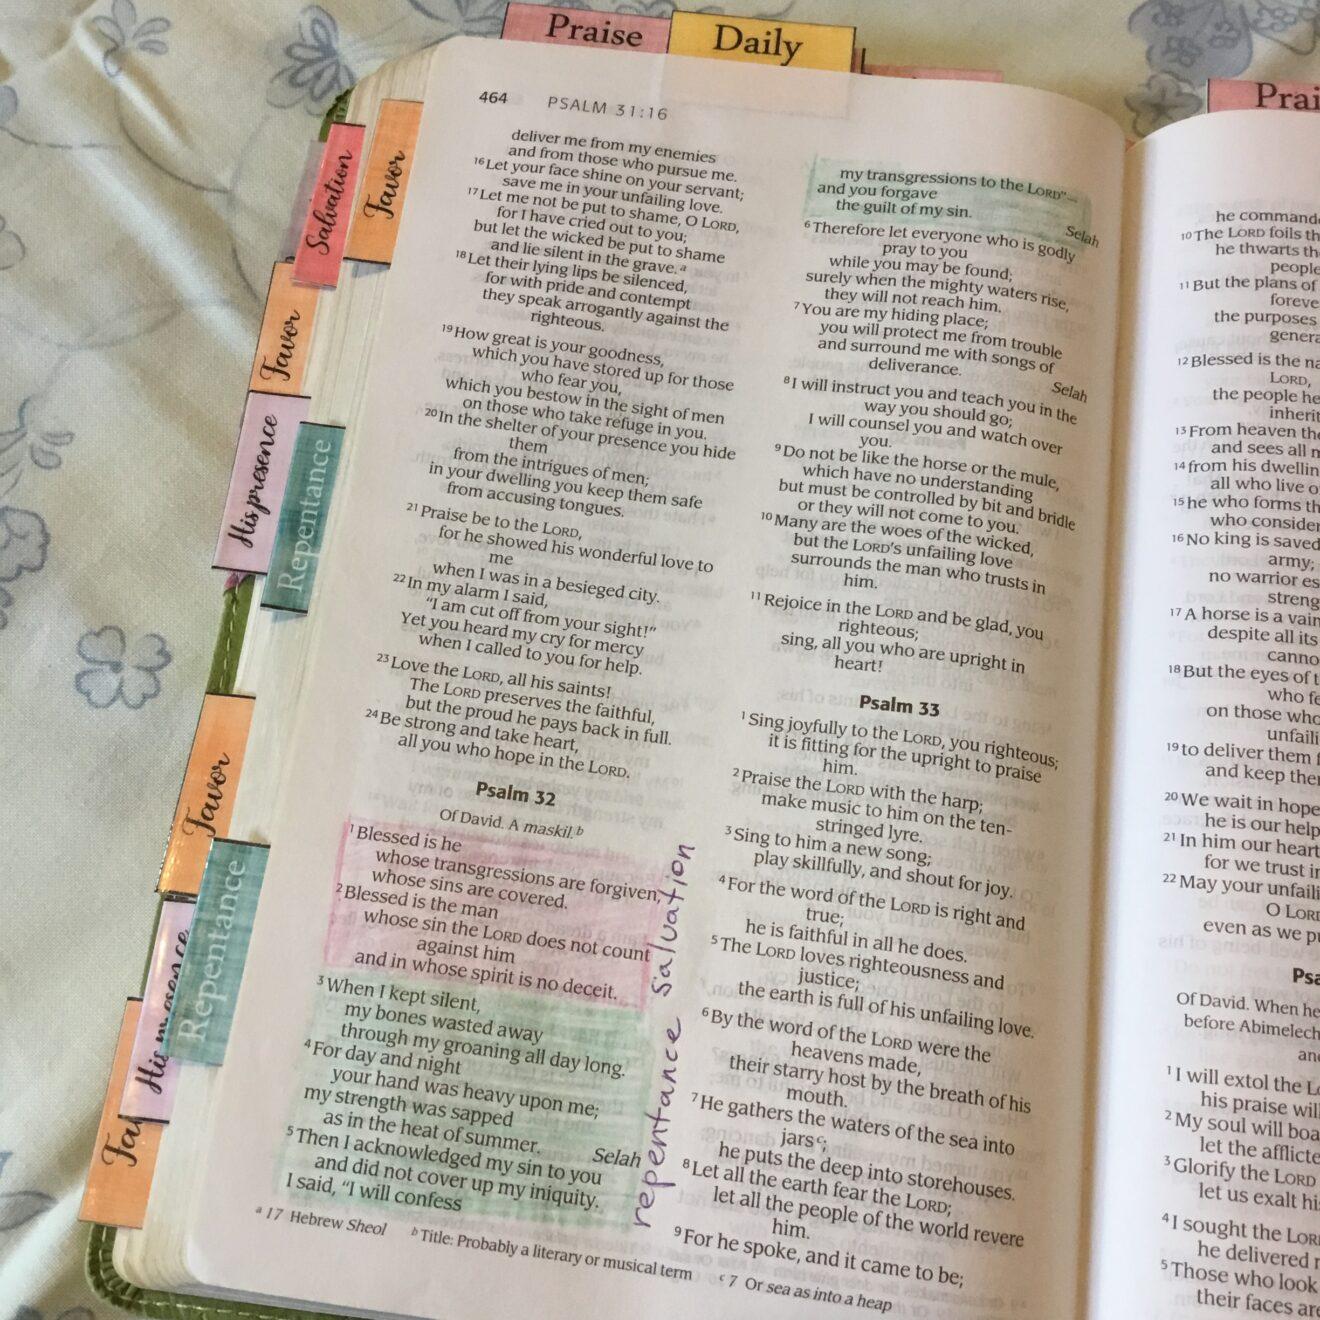 Praise
Daily
Prai
Salvation
Favor
Favor
His presence
Repentance
Favor
Repentance
His presence
464 PSALM 31:16
deliver me from my enemies
and from those who pursue me.
16 Let your face shine on your servant;
save me in your unfailing love.
17 Let me not be put to shame, O LORD,
for I have cried out to you;
but let the wicked be put to shame
and lie silent in the grave. a
18 Let their lying lips be silenced,
for with pride and contempt
they speak arrogantly against the
righteous.
19 How great is your goodness,
which you have stored up for those
who fear you,
which you bestow in the sight of men
on those who take refuge in you.
20 In the shelter of your presence you hide
them
from the intrigues of men;
in your dwelling you keep them safe
from accusing tongues.
21 Praise be to the LORD,
for he showed his wonderful love to
me
when I was in a besieged city.
22 In my alarm I said,
"I am cut off from your sight!"
Yet you heard my cry for mercy
when I called to you for help.
23 Love the LORD, all his saints!
The LORD preserves the faithful,
but the proud he pays back in full.
24 Be strong and take heart,
all you who hope in the LORD.
Psalm 32
Of David. A maskil. b
1 Blessed is he
whose transgressions are forgiven,
whose sins are covered.
2 Blessed is the man
whose sin the LORD does not count
against him
and in whose spirit is no deceit.
3 When I kept silent,
my bones wasted away
through my groaning all day long.
4 For day and night
your hand was heavy upon me;
my strength was sapped
as in the heat of summer.
Selah
5 Then I acknowledged my sin to you
and did not cover up my iniquity.
I said, "I will confess
repentance salvation
my transgressions to the LORD"—
and you forgave
the guilt of my sin.
Selah
6 Therefore let everyone who is godly
pray to you
while you may be found;
surely when the mighty waters rise,
they will not reach him.
7 You are my hiding place;
you will protect me from trouble
and surround me with songs of
deliverance.
Selah
8 I will instruct you and teach you in the
way you should go;
I will counsel you and watch over
you.
9 Do not be like the horse or the mule,
which have no understanding
but must be controlled by bit and bridle
or they will not come to you.
10 Many are the woes of the wicked,
but the LORD's unfailing love
surrounds the man who trusts in
him.
11 Rejoice in the LORD and be glad, you
righteous;
sing, all you who are upright in
heart!
Psalm 33
1 Sing joyfully to the LORD, you righteous;
it is fitting for the upright to praise
him.
2 Praise the LORD with the harp;
make music to him on the ten-
stringed lyre.
3 Sing to him a new song;
play skillfully, and shout for joy.
4 For the word of the LORD is right and
true;
he is faithful in all he does.
5 The LORD loves righteousness and
justice;
the earth is full of his unfailing love.
6 By the word of the LORD were the
heavens made,
their starry host by the breath of his
mouth.
7 He gathers the waters of the sea into
jars c;
he puts the deep into storehouses.
8 Let all the earth fear the LORD;
let all the people of the world revere
him.
9 For he spoke, and it came to be;
a 17 Hebrew Sheol b Title: Probably a literary or musical term c 7 Or sea as into a heap
he command
10 The LORD foils th
he thwarts th
people
11 But the plans of
foreve
the purposes
genera
12 Blessed is the na
LORD,
the people he
inherit
13 From heaven the
and sees all m
14 from his dwellin
all who live o
15 he who forms th
who consider
16 No king is saved
army;
no warrior es
streng
17 A horse is a vain
despite all its
canno
18 But the eyes of t
who fe
on those who
unfaili
19 to deliver them f
and keep the
20 We wait in hope
he is our help
21 In him our heart
for we trust in
22 May your unfaili
O LORD
even as we pu
Psa
Of David. When he
before Abimelech
and
1 I will extol the Lo
his praise will
2 My soul will boa
let the afflicte
3 Glorify the LORD
let us exalt his
4 I sought the LORD
he delivered
5 Those who look
their faces are